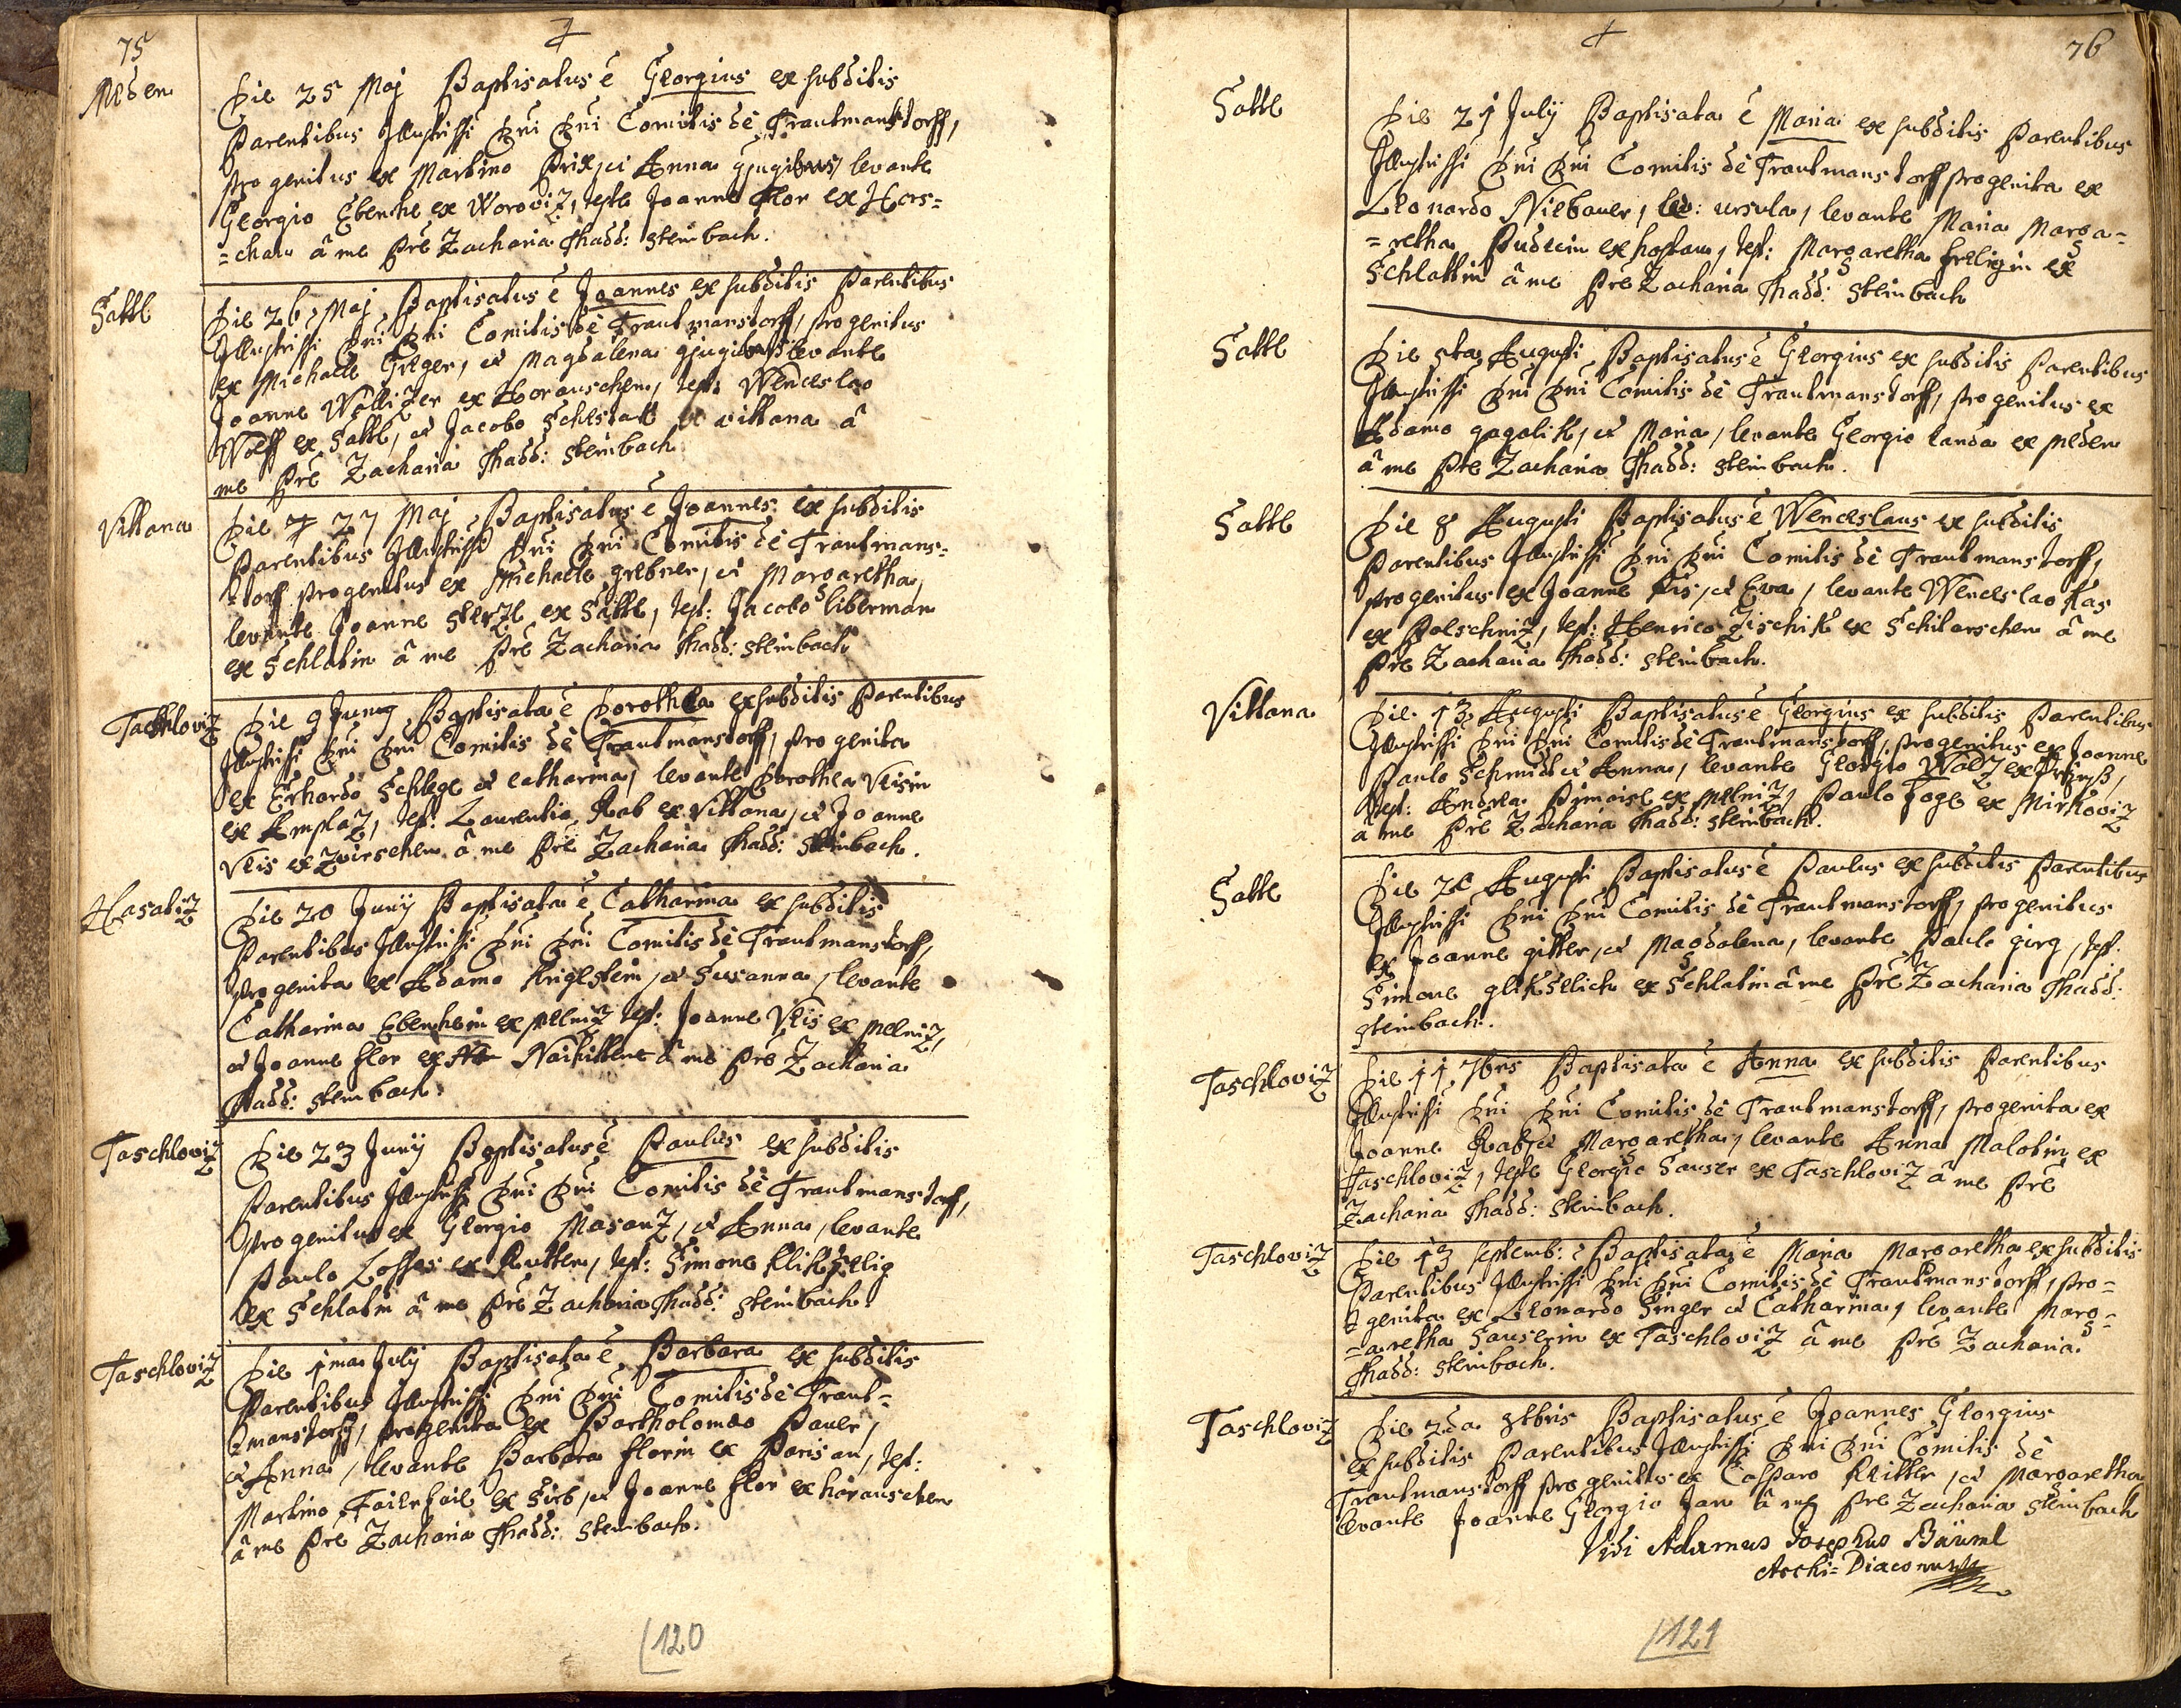 75
Meden
Die 25 Maj Baptisatus ē Georgius ex subditis
Parentibus Illustrissi Dni Dni Comitis dè Trautmanstorff,
progenitus ex Martino et Anna levante
Georgio ex Worowiz, teste Joanne Flor ex Hors=
=chau â me Pre Zacharia Thadd: Steinbach.
Sattl
Die 26 Maj Baptisatus ē Joannes ex subditis Parentibus
Illustrissi Dni Dni Comitis dè Trautmanstorff, progenitus
ex Michaele Greger, et Magdalena levante
Joanne Wolliger ex Horauschen, test: Wenceslao
Wolff ex Sattl, et Jacobo ex Vittana â
me Pre Zacharia Thadd: Steinbach
Vittana
Die 27 Maj Baptisatus ē Joannes ex subditis
Parentibus Illustrissi Dni Dni Comitis dè Trautmans=
=torff progenitus ex Michaele grebner, et Margaretha,
levante Joanne Sterzl ex Sattl, test: Jacobo liberman
ex Schlatin â me Pre Zacharia Thadd: Steinbach
Taschloviz
Die 9 Juny Baptisata ē Dorothea ex subditis Parentibus
Illustrissi Dni Dni Comitis dè Trautmanstorff, progenita
ex Erhardo Schlege et catharina, levante Dorothea Veisin
ex Amplaz, test: Laurentio Rab ex Vittana, et Joanne
Veis ex Zwirschen â me Pre Zacharia Thadd: Steinbach.
Hasatiz
Die 20 Junij Baptisata ē Catharina ex subditis
Parentibus Illustrissi Dni Dni Comitis dè Trautmanstorff,
progenita ex Adamo Krigelstein, et Susanna, levante
Catharina Ebenhein ex Melniz test: Joanne Veis ex Melniz,
et Joanne flor ex Naikittene â me Pre Zacharia
Thadd: Steinbach.
Taschloviz
Die 23 Junij Baptisatus ē Paulus ex subditis
Parentibus Illustrissi Dni Dni Comitis dè Trautmanstorff,
progenitus ex Georgio Masanz, et Anna, levante
Paulo ex Rutten, test: Simone Klikselig
ex Schlatin â me Pre Zacharia Thadd: Steinbach.
Taschloviz
Die 1ma July Baptisata ē Barbara ex subditis
Parentibus Illustrissi Dni Dni Comitis dè Traut=
=manstorff, progenita ex Bartholomeo Paver,
et Anna, levante Barbara florin ex Parisau, test:
Martino Faierfail ex Sirb, et Joanne flor ex horauschen
â me Pre Zacharia Thadd: Steinbach.
120
76
Sattl
Die 21 July Baptisata ē Maria ex subditis Parentibus
Illustrissi Dni Dni Comitis dè Trautmanstorff progenita ex
Leonardo Niebauer, et ursula, levante Maria Marga=
=retha ex hostau, test: Margaretha freligin ex
Schlattin â me Pre Zacharia Thadd: Steinbach
Sattl
Die 5ta Augusti Baptisatus ē Georgius ex subditis Parentibus
Illustrissi Dni Dni Comitis dè Trautmanstorff, progenitus ex
Adamo gagalik, et Maria, levante Georgio landa ex Meden
â me Pre Zacharia Thadd: Steinbach.
Sattl
Die 8 Augusti Baptisatus ē Wenceslaus ex subditis
Parentibus Illustrissi Dni Dni Comitis dè Trautmanstorff,
progenitus ex Joanne Pis, et Eva, levante Wenceslao Kas
ex Polschniz, test: Henrico Zischik ex Schitarschen â me
Pre Zacharia Thadd: Steinbach.
Vittana
Die 13 Augusti Baptisatus ē Georgius ex subditis Parentibus
Illustrissi Dni Dni Comitis dè Trautmanstorff, progenitus ex Joanne
Paulo Schmidt et Anna, levante Georgio Wolz ex
test: Andrea ex Melniz, Paulo foge ex Mirkoviz
â me Pre Zacharia Thadd: Steinbach.
Sattl
Die 20 Augusti Baptisatus ē Paulus ex subditis Parentibus
Illustrissi Dni Dni Comitis dè Trautmanstorff, progenitus
ex Joanne gitter, et Magdalena, levante Paulo girg, test:
Simone glikselich ex Schlatin â me Pre Zacharia Thadd:
Steinbach.
Taschloviz
Die 11 7bris Baptisata ē Anna ex subditis Parentibus
Illustrissi Dni Dni Comitis dè Trautmanstorff, progenita ex
Joanne Rab, et Margaretha, levante Anna Malotin ex
Taschloviz, teste Georgio Sauser ex Taschloviz â me Pre
Zacharia Thadd: Steinbach.
Taschloviz
Die 13 Septemb: Baptisata ē Maria Margaretha ex subditis
Parentibus Illustrissi Dni Dni Comitis dè Trautmanstorff, pro=
=genita ex Leonardo Singer et Catharina, levante Marg=
=aretha Sauserin ex Taschloviz â me Pre Zacharia
Thadd: Steinbach.
Taschloviz
Die 2da 8tbris Baptisatus ē Joannes Georgius
ex subditis Parentibus Illustrissi Dni Dni Comitis dè
Trautmanstorff progenitus ex Casparo Reitter, et Margaretha
levante Joanne Georgio Jan â me Pre Zacharia Steinbach
Vidi Adamus Josephus Bäuml
Archi=Diaconus
121